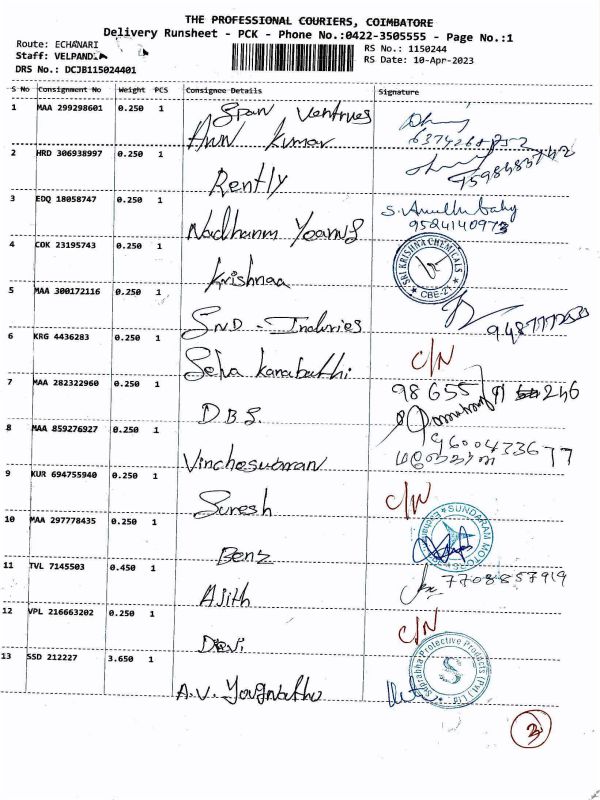 THE PROFESSIONAL COURIERS, COIMBATORE
Delivery Runsheet - PCK - Phone No.:0422-3505555 - Page No.:1
Route: ECHANARI
RS No.: 1150244
Staff: VELPANDIA
RS Date: 10-Apr-2023
DRS No.: DCJB115024401
S No Consignment No Weight PCS Consignee Details Signature
1 MAA 299298601 0.250 1 Span Ventrues
Arun Kumar
2 HRD 306938997 0.250 1 Rently
3 EDQ 18058747 0.250 1 Nadhanm
9524140973
4 COK 23195743 0.250 1 Krishnaa
SRI KRISHNA CHEMICALS
CBE-21
5 MAA 300172116 0.250 1 SND - Industries
6 KRG 4436283 0.250 1 C/N
7 MAA 282322960 0.250 1 D.B.S. 98655
8 MAA 859276927 0.250 1 9600433677
9 KUR 694755940 0.250 1 Suresh C/N
10 MAA 297778435 0.250 1 Benz
SUNDARAM MOTORS
11 TVL 7145503 0.450 1 Ajith 7708857919
12 VPL 216663202 0.250 1 Devi C/N
13 SSD 212227 3.650 1 A.V.
Suprabha Protective Products (PVT) LTD
S
3